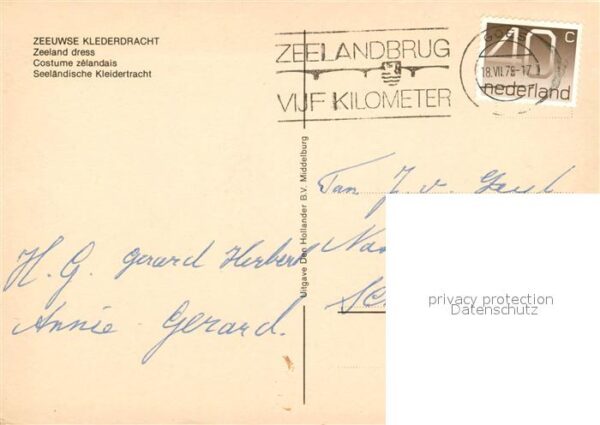 ZEEUWSE KLEDERDRACHT
Zeeland dress
Costume zélandais
Seeländische Kleidertracht
ZEELANDBRUG
VIJF KILOMETER
GOES
18.VII.78-17
40 c
nederland
Uitgave Den Hollander B.V. Middelburg
Fam. J. v.
H. G. Gerard Herbert
Annie Gerard.
privacy protection
Datenschutz